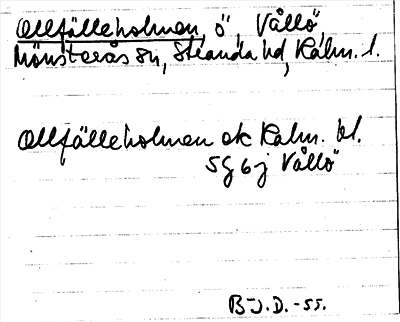 Allfälleholmen, ö, Vållö,
Mönsterås sn, Stranda hd, Kalm. l.
Allfälleholmen ek Kalm. bl.
5G6j Vållö
B-J.D.-55.